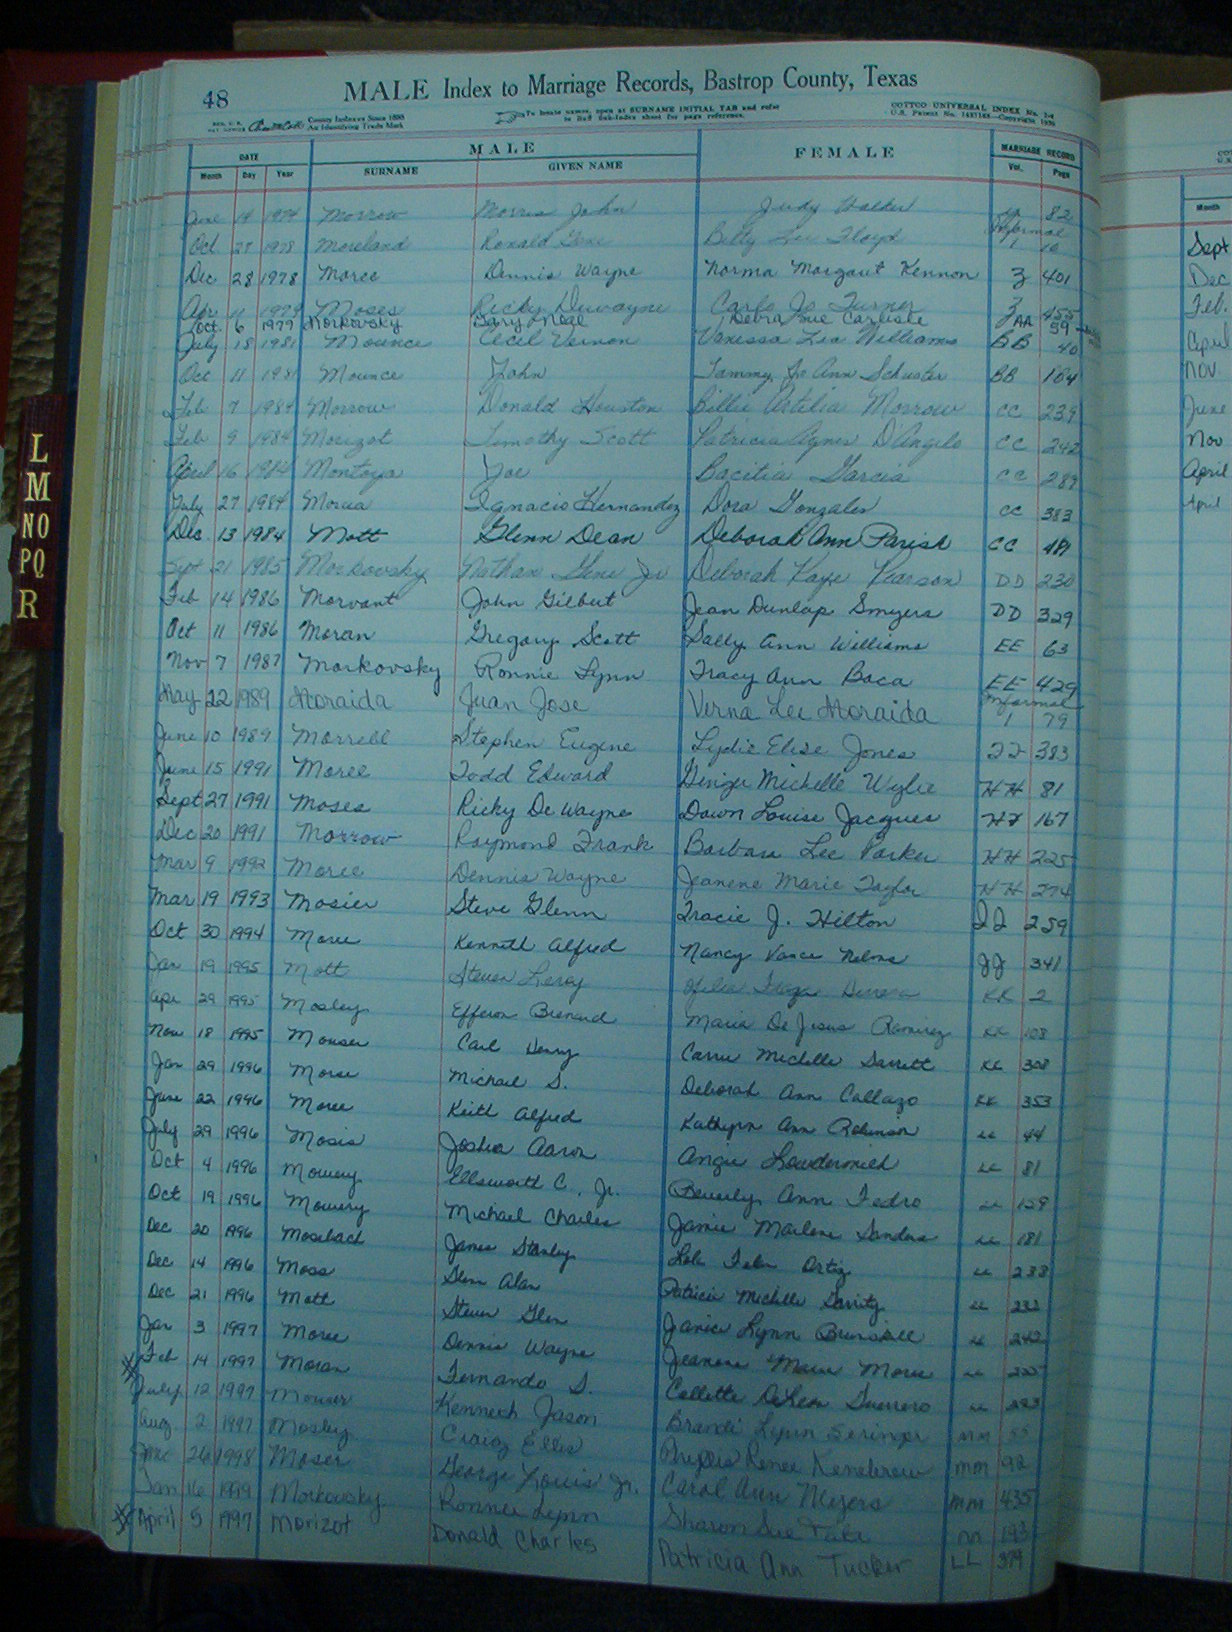 48
MALE Index to Marriage Records, Bastrop County, Texas
County Indexes Since 1888
An Identifying Trade Mark
To locate names, open at SURNAME INITIAL TAB and refer
to Sub-Index sheet for page reference.
COTTCO UNIVERSAL INDEX
DATE MALE FEMALE MARRIAGE RECORD
Month Day Year SURNAME GIVEN NAME Vol. Page
June 14 1974 Morrow Morris John Judy Walker 82
Oct 27 1978 Moreland Ronald Gene Betty Lee Floyd Informal 1 10
Dec 28 1978 Moree Dennis Wayne Norma Margaret Kennon Z 401
Apr 11 1979 Moses Ricky Dewayne Carla Jo Turner Z 455
Oct. 6 1979 Morkovsky Gary Neal Debra Sue Carlisle AA 59
July 18 1981 Mounce Cecil Vernon Vanessa Lea Williams BB 40
Oct 11 1981 Mounce John Tammy Jo Ann Schuster BB 164
Feb 7 1984 Morrow Donald Houston Billie Artelia Morrow CC 239
Feb 9 1984 Morizot Timothy Scott Patricia Agnes D'Angelo CC 242
April 16 1984 Montoya Joe Garcia CC 289
July 27 1984 Ignacio Hernandez Dora Gonzales CC 383
Dec. 13 1984 Mott Glenn Dean Deborah Ann Parish CC 481
Sept 21 1985 Morkovsky Nathan Gene Jr Deborah Kaye Pearson DD 230
Feb 14 1986 Morvant John Gilbert Jean Dunlap Smyers DD 329
Oct 11 1986 Moran Gregory Scott Sally Ann Williams EE 63
Nov 7 1987 Morkovsky Ronnie Lynn Tracy Ann Baca EE 429
May 22 1989 Moraida Juan Jose Verna Lee Moraida Informal 1 79
June 10 1989 Morrell Stephen Eugene Lydie Elise Jones 383
June 15 1991 Moree Todd Edward Michelle Wylie HH 81
Sept 27 1991 Moses Ricky De Wayne Dawn Louise Jacques HH 167
Dec 20 1991 Morrow Raymond Frank Barbara Lee Parker HH 225
Mar 9 1992 Moree Dennis Wayne Jeanene Marie Taylor HH 274
Mar 19 1993 Mosier Steve Glenn Tracie J. Hilton II 259
Oct 30 1994 Moree Kenneth Alfred Nancy Vance Nelms JJ 341
Jan 19 1995 Mott Steven Leroy KK 2
Apr 29 1995 Mosley Maria De Jesus Ramirez KK 108
Nov 18 1995 Mouser Carl Henry Carrie Michelle KK 308
Jan 29 1996 Morse Michael S. Deborah Ann Collazo KK 353
June 22 1996 Moree Keith Alfred Kathryn Ann Robinson LL 44
July 29 1996 Mosis Joshua Aaron Angie Lowdermilk LL 81
Oct 4 1996 Mowery Ellsworth C. Jr. Beverly Ann Fedro LL 159
Oct 19 1996 Mowery Michael Charles Jamie Marlene Sanders LL 181
Dec 20 1996 Mosebach James Stanley Ortiz LL 238
Dec 14 1996 Moss Glenn Alan Patricia Michelle LL
Dec 21 1996 Mott Steven Glen Janice Lynn LL 242
Jan 3 1997 Moree Dennis Wayne Jeanene Marie Moree LL
Feb 14 1997 Moran Fernando S. Collette DeLeon Guerrero LL 293
July 12 1997 Mouser Kenneth Jason Brandi Lynn MM
Aug. 2 1997 Mosley Craig Ellis Phyllis Renee MM 92
26 1998 Moser George Louis Jr. Carol Ann Meyers MM 435
Jan 16 1999 Morkovsky Ronnie Lynn Sharon Sue 193
April 5 1997 Morizot Donald Charles Patricia Ann Tucker LL 379
L
M
NO
PQ
R
Month
Sept
Dec
Feb.
April
Nov
June
Nov
April
April